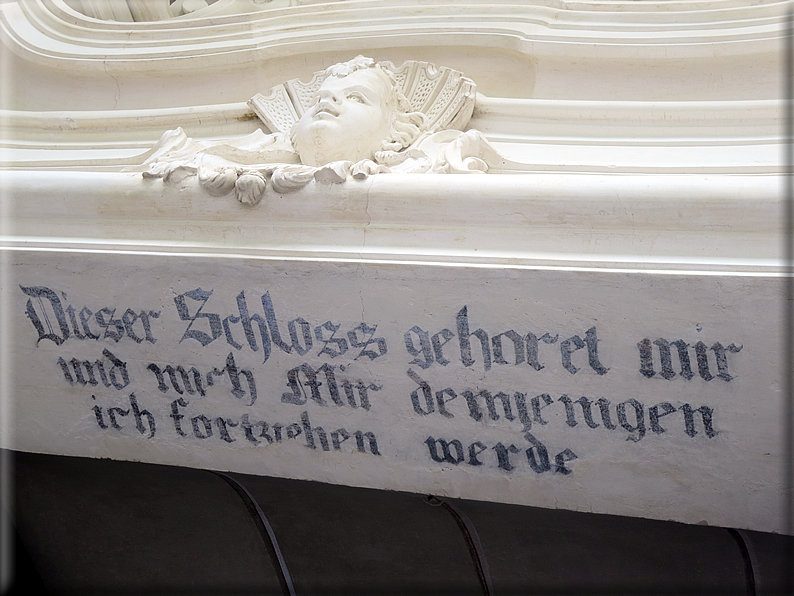 Dieser Schloss gehoret mir
und nach Mir demjenigen
ich fortziehen werde